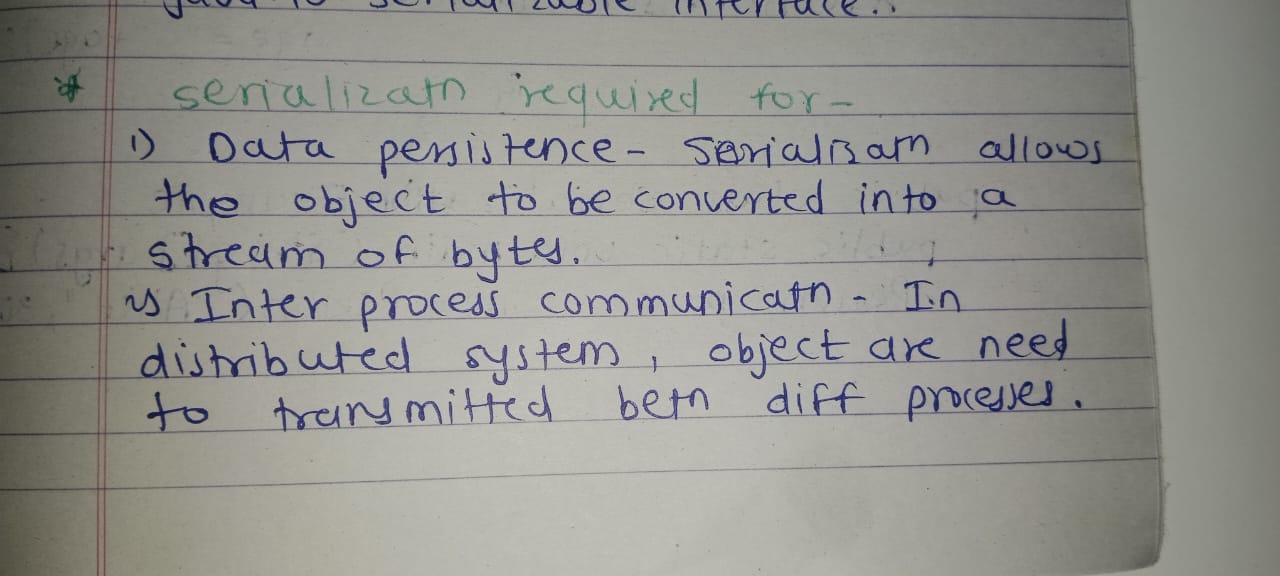 serializable interface..
* serializatn required for -
1) Data persistence - Serializatn allows
the object to be converted into a
stream of bytes.
2) Inter process communicatn - In
distributed system, object are need
to transmitted betn diff processes.